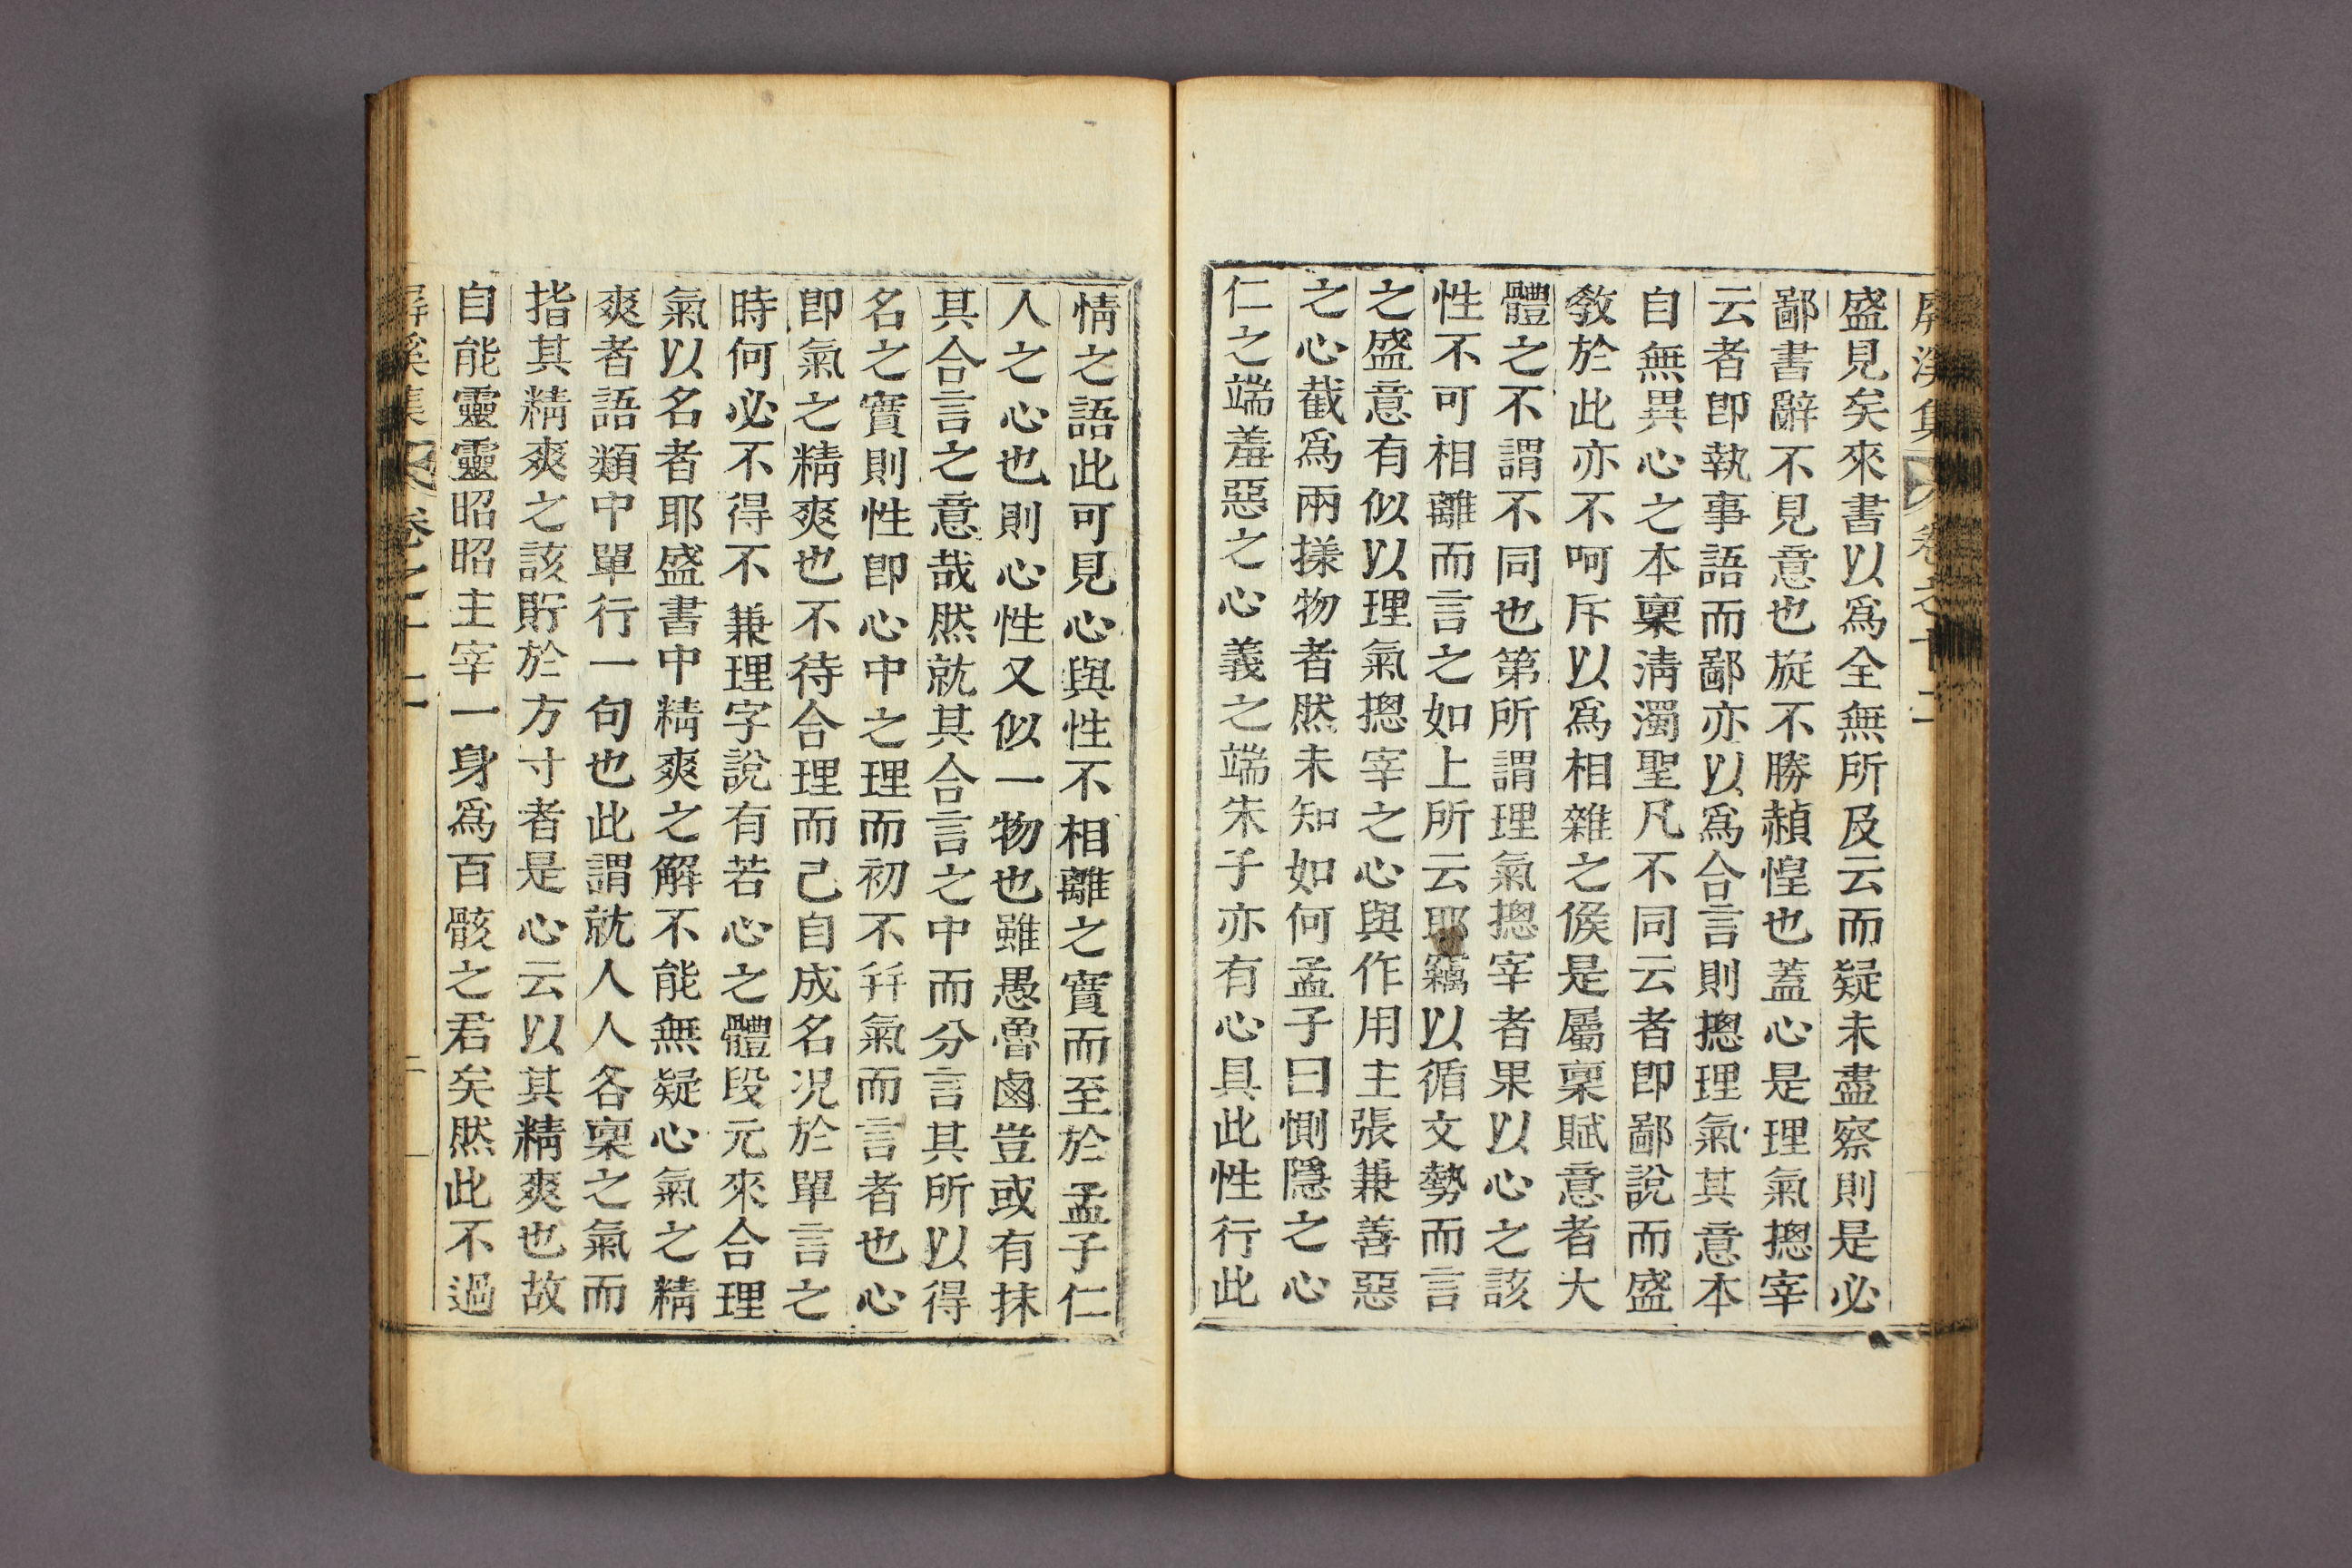 屏溪集 卷之十二
盛見矣來書以爲全無所及云而疑未盡察則是必
鄙書辭不見意也旋不勝赬惶也蓋心是理氣摠宰
云者卽執事語而鄙亦以爲合言則摠理氣其意本
自無異心之本稟淸濁聖凡不同云者卽鄙說而盛
敎於此亦不呵斥以爲相雜之候是屬稟賦意者大
體之不謂不同也第所謂理氣摠宰者果以心之該
性不可相離而言之如上所云耶竊以循文勢而言
之盛意有似以理氣摠宰之心與作用主張兼善惡
之心截爲兩㨾物者然未知如何孟子曰惻隱之心
仁之端羞惡之心義之端朱子亦有心具此性行此
情之語此可見心與性不相離之實而至於孟子仁
人之心也則心性又似一物也雖愚魯鹵豈或有抹
其合言之意哉然就其合言之中而分言其所以得
名之實則性卽心中之理而初不幷氣而言者也心
卽氣之精爽也不待合理而已自成名况於單言之
時何必不得不兼理字說有若心之體段元來合理
氣以名者耶盛書中精爽之解不能無疑心氣之精
爽者語類中單行一句也此謂就人人各稟之氣而
指其精爽之該貯於方寸者是心云以其精爽也故
自能靈靈昭昭主宰一身爲百骸之君矣然此不過
屏溪集 卷之十二 二